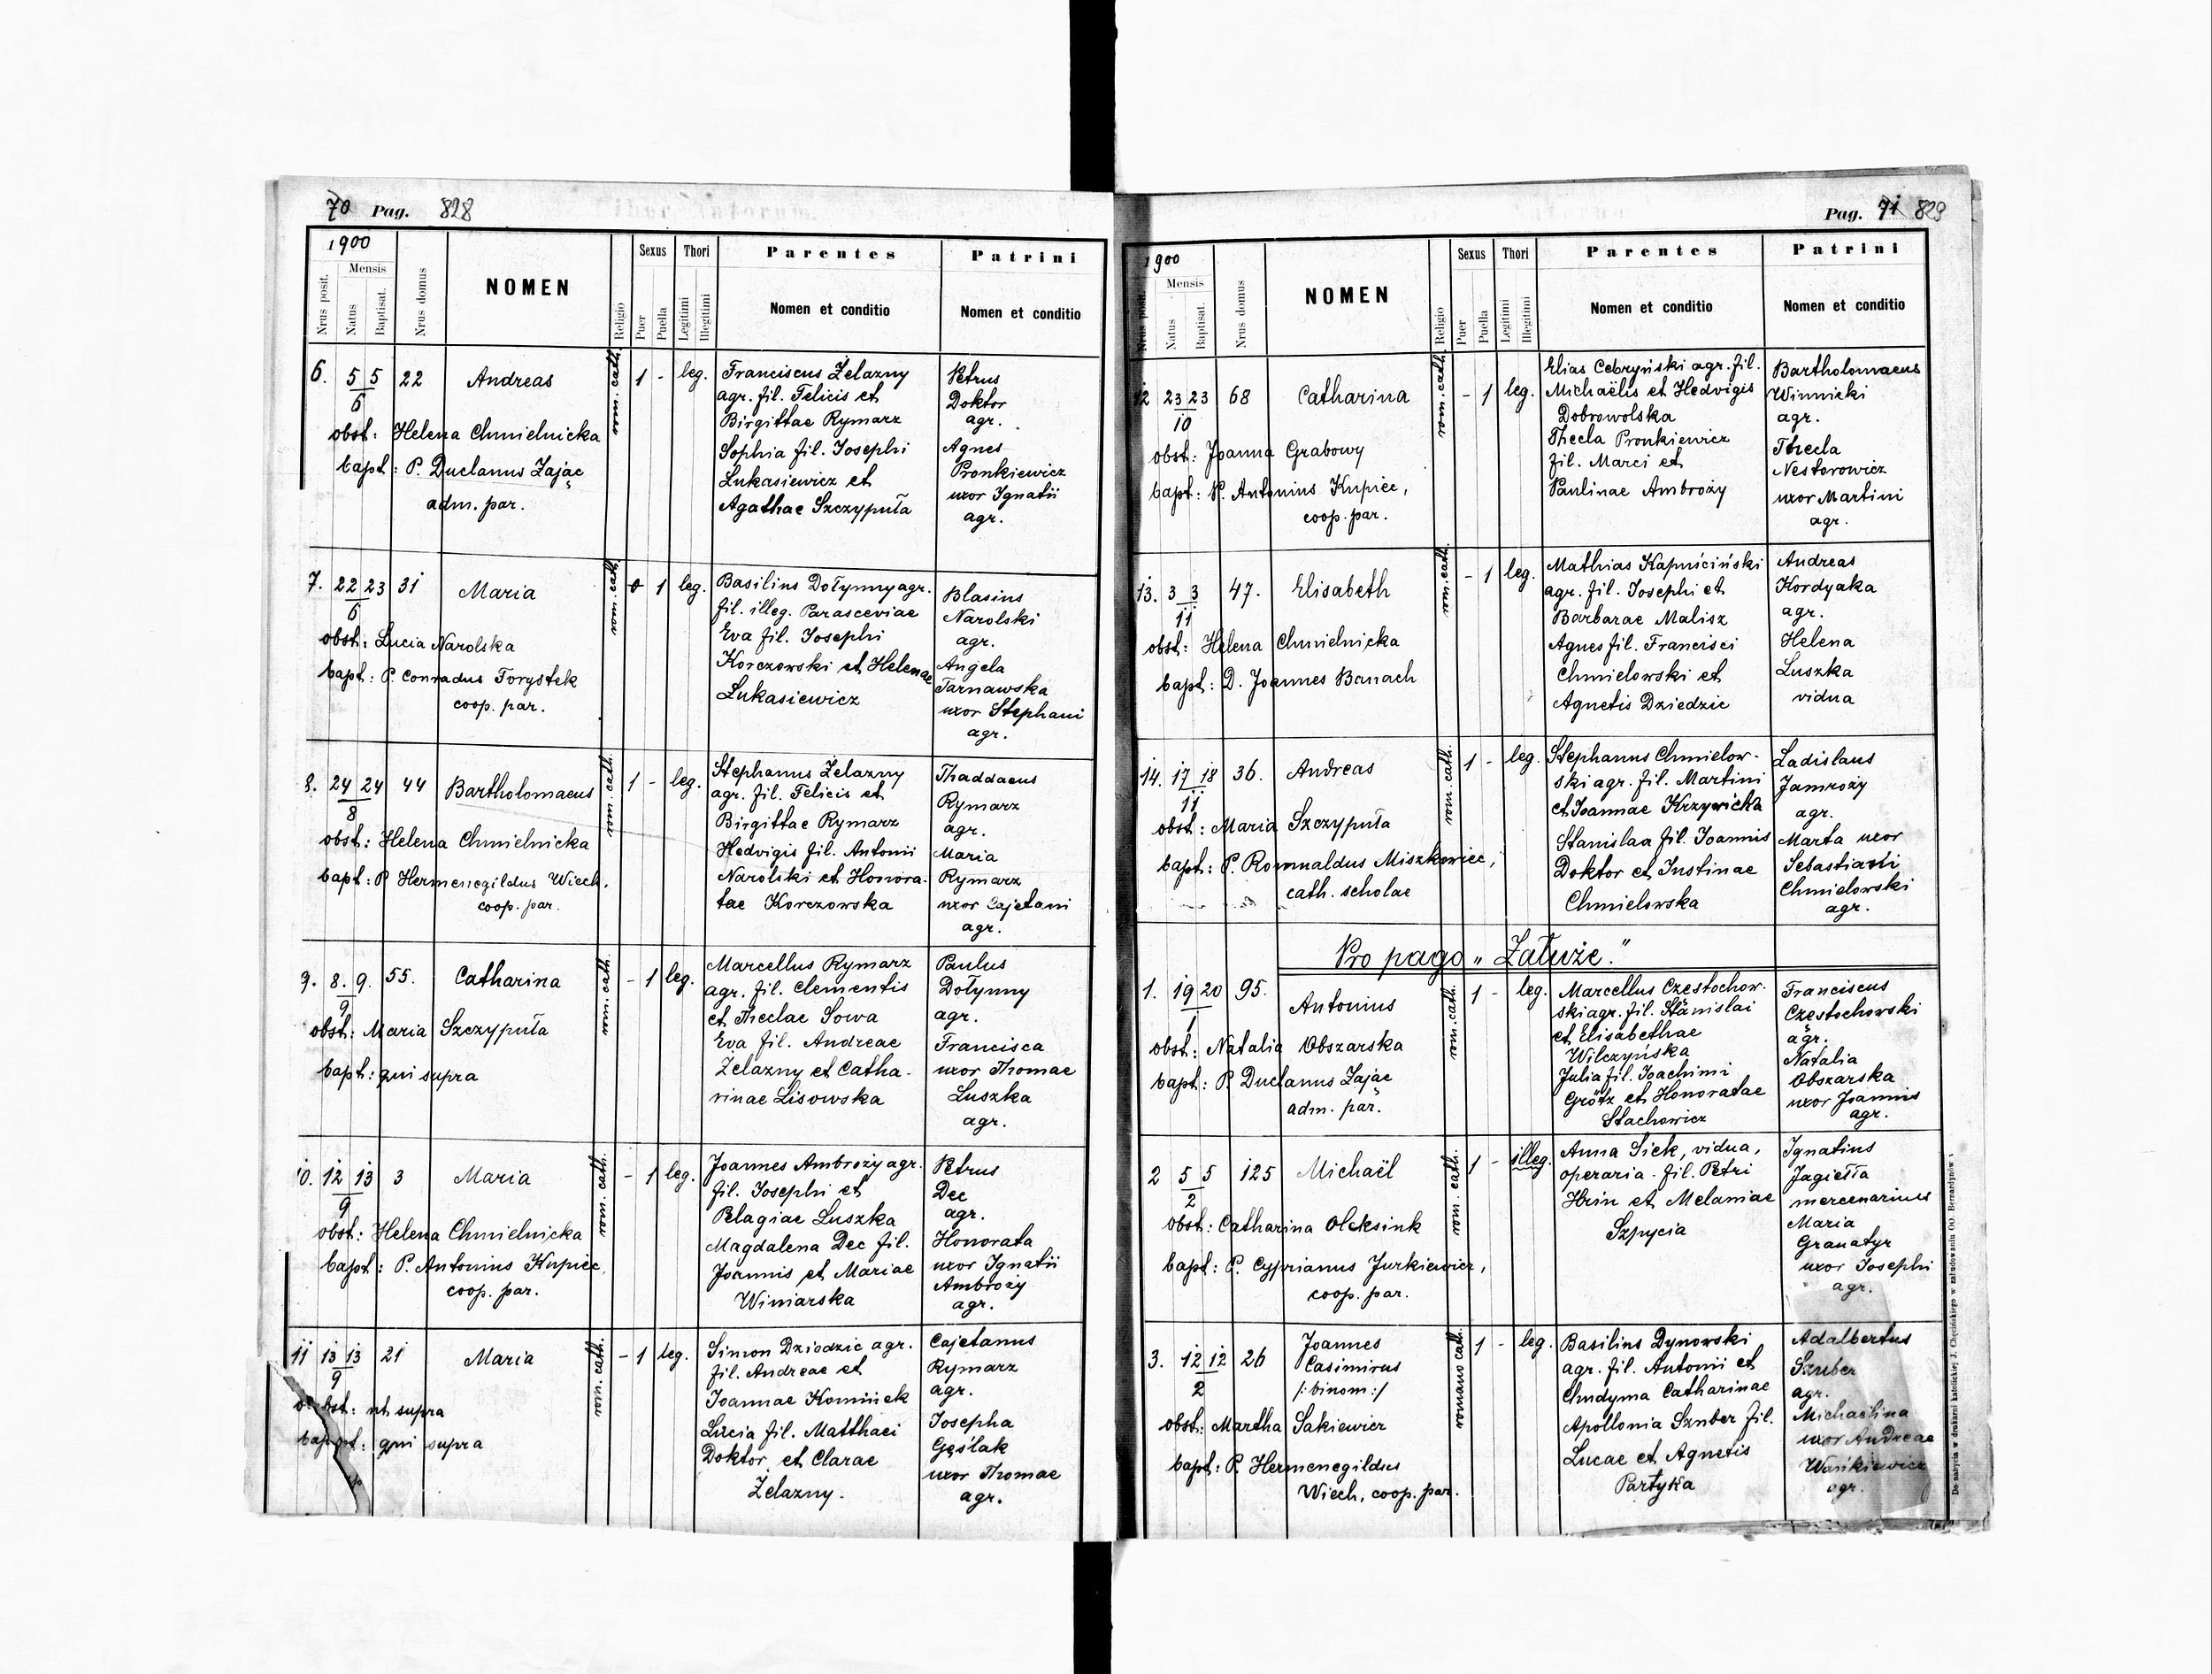 70 Pag. 828
1900
Nrus posit.
Mensis
Natus
Baptisat.
Nrus domus
NOMEN
Religio
Sexus
Puer
Puella
Thori
Legitimi
Illegitimi
Parentes
Nomen et conditio
Patrini
Nomen et conditio
6. 5 5 22 Andreas rom. cath. 1 - leg.
6
obst: Helena Chmielnicka
bapt: P. Duclanus Zając
adm. par.
Franciscus Żelazny
agr. fil. Felicis et
Birgittae Rymarz
Sophia fil. Josephi
Lukasiewicz et
Agathae Szczypuła
Petrus
Doktor
agr.
Agnes
Pronkiewicz
uxor Ignatii
agr.
7. 22 23 31 Maria rom. cath. 0 1 leg.
6
obst: Lucia Narolska
bapt: P. Conradus Forystek
coop. par.
Basilius Dołynny agr.
fil. illeg. Parasceviae
Eva fil. Josephi
Korczowski et Helenae
Lukasiewicz
Blasius
Narolski
agr.
Angela
Tarnawska
uxor Stephani
agr.
8. 24 24 44 Bartholomaeus rom. cath. 1 - leg.
8
obst: Helena Chmielnicka
bapt: P Hermenegildus Wiech,
coop. par.
Stephanus Żelazny
agr. fil. Felicis et
Birgittae Rymarz
Hedvigis fil. Antonii
Narolski et Honora-
tae Korczowska
Thaddaeus
Rymarz
agr.
Maria
Rymarz
uxor Cajetani
agr.
9. 8. 9. 55. Catharina rom. cath. - 1 leg.
9
obst: Maria Szczypuła
bapt: qui supra
Marcellus Rymarz
agr. fil. Clementis
et Theclae Sowa
Eva fil. Andreae
Żelazny et Catha-
rinae Lisowska
Paulus
Dołynny
agr.
Francisca
uxor Thomae
Luszka
agr.
10. 12 13 3 Maria rom. cath. - 1 leg.
9
obst: Helena Chmielnicka
bapt: P. Antonius Kupiec,
coop. par.
Joannes Ambroży agr.
fil. Josephi et
Pelagiae Luszka
Magdalena Dec fil.
Joannis et Mariae
Winiarska
Petrus
Dec
agr.
Honorata
uxor Ignatii
Ambroży
agr.
11 13 13 21 Maria rom. cath. - 1 leg.
9
obst: ut supra
bapt: qui supra
Simon Dziedzic agr.
fil. Andreae et
Joannae Kominek
Lucia fil. Matthaei
Doktor et Clarae
Żelazny.
Cajetanus
Rymarz
agr.
Josepha
Gęślak
uxor Thomae
agr.
Pag. 71 829
1900
Nrus posit.
Mensis
Natus
Baptisat.
Nrus domus
NOMEN
Religio
Sexus
Puer
Puella
Thori
Legitimi
Illegitimi
Parentes
Nomen et conditio
Patrini
Nomen et conditio
12 23 23 68 Catharina rom. cath. - 1 leg.
10
obst: Joanna Grabowy
bapt: P. Antonius Kupiec,
coop. par.
Elias Cebryński agr. fil.
Michaëlis et Hedvigis
Dobrowolska
Thecla Pronkiewicz
fil. Marci et
Paulinae Ambroży
Bartholomaeus
Winnicki
agr.
Thecla
Nestorowicz
uxor Martini
agr.
13. 3 3 47. Elisabeth rom. cath. - 1 leg.
11
obst: Helena Chmielnicka
bapt: D. Joannes Banach
Mathias Kapuściński
agr. fil. Josephi et
Barbarae Malisz
Agnes fil. Francisci
Chmielowski et
Agnetis Dziedzic
Andreas
Kordyaka
agr.
Helena
Luszka
vidua
14. 17 18 36. Andreas rom. cath. 1 - leg.
11
obst: Maria Szczypuła
bapt: P. Romualdus Miszkowiec,
cath. scholae
Stephanus Chmielow-
ski agr. fil. Martini
et Joannae Krzywicka
Stanislaa fil. Joannis
Doktor et Justinae
Chmielowska
Ladislaus
Jamroży
agr.
Marta uxor
Sebastiani
Chmielowski
agr.
Pro pago „Załuże."
1. 19 20 95. Antonius rom. cath. 1 - leg.
1
obst: Natalia Obszarska
bapt: P. Duclanus Zając
adm. par.
Marcellus Częstochow-
ski agr. fil. Stanislai
et Elisabethae
Wilczyńska
Julia fil. Joachimi
Grötz et Honoratae
Stachowicz
Franciscus
Częstochowski
agr.
Natalia
Obszarska
uxor Joannis
agr.
2 5 5 125 Michaël rom. cath. 1 - illeg.
2
obst: Catharina Oleksiuk
bapt: P. Cyprianus Jurkiewicz,
coop. par.
Anna Sick, vidua,
operaria. fil. Petri
Hrin et Melaniae
Szpycia
Ignatius
Jagiełła
mercenarius
Maria
Granatyr
uxor Josephi
agr.
3. 12 12 26 Joannes
Casimirus
/:binom:/
romano cath. 1 - leg.
2
obst: Martha Sakiewicz
bapt: P. Hermenegildus
Wiech, coop. par.
Basilius Dynowski
agr. fil. Antonii et
Chudyma Catharinae
Apollonia Szuber fil.
Lucae et Agnetis
Partyka
Adalbertus
Szuber
agr.
Michaëlina
uxor Andreae
Waśkiewicz
agr.
Do nabycia w drukarni katolickiej J. Chęcińskiego w zabudowaniu OO. Bernardynów